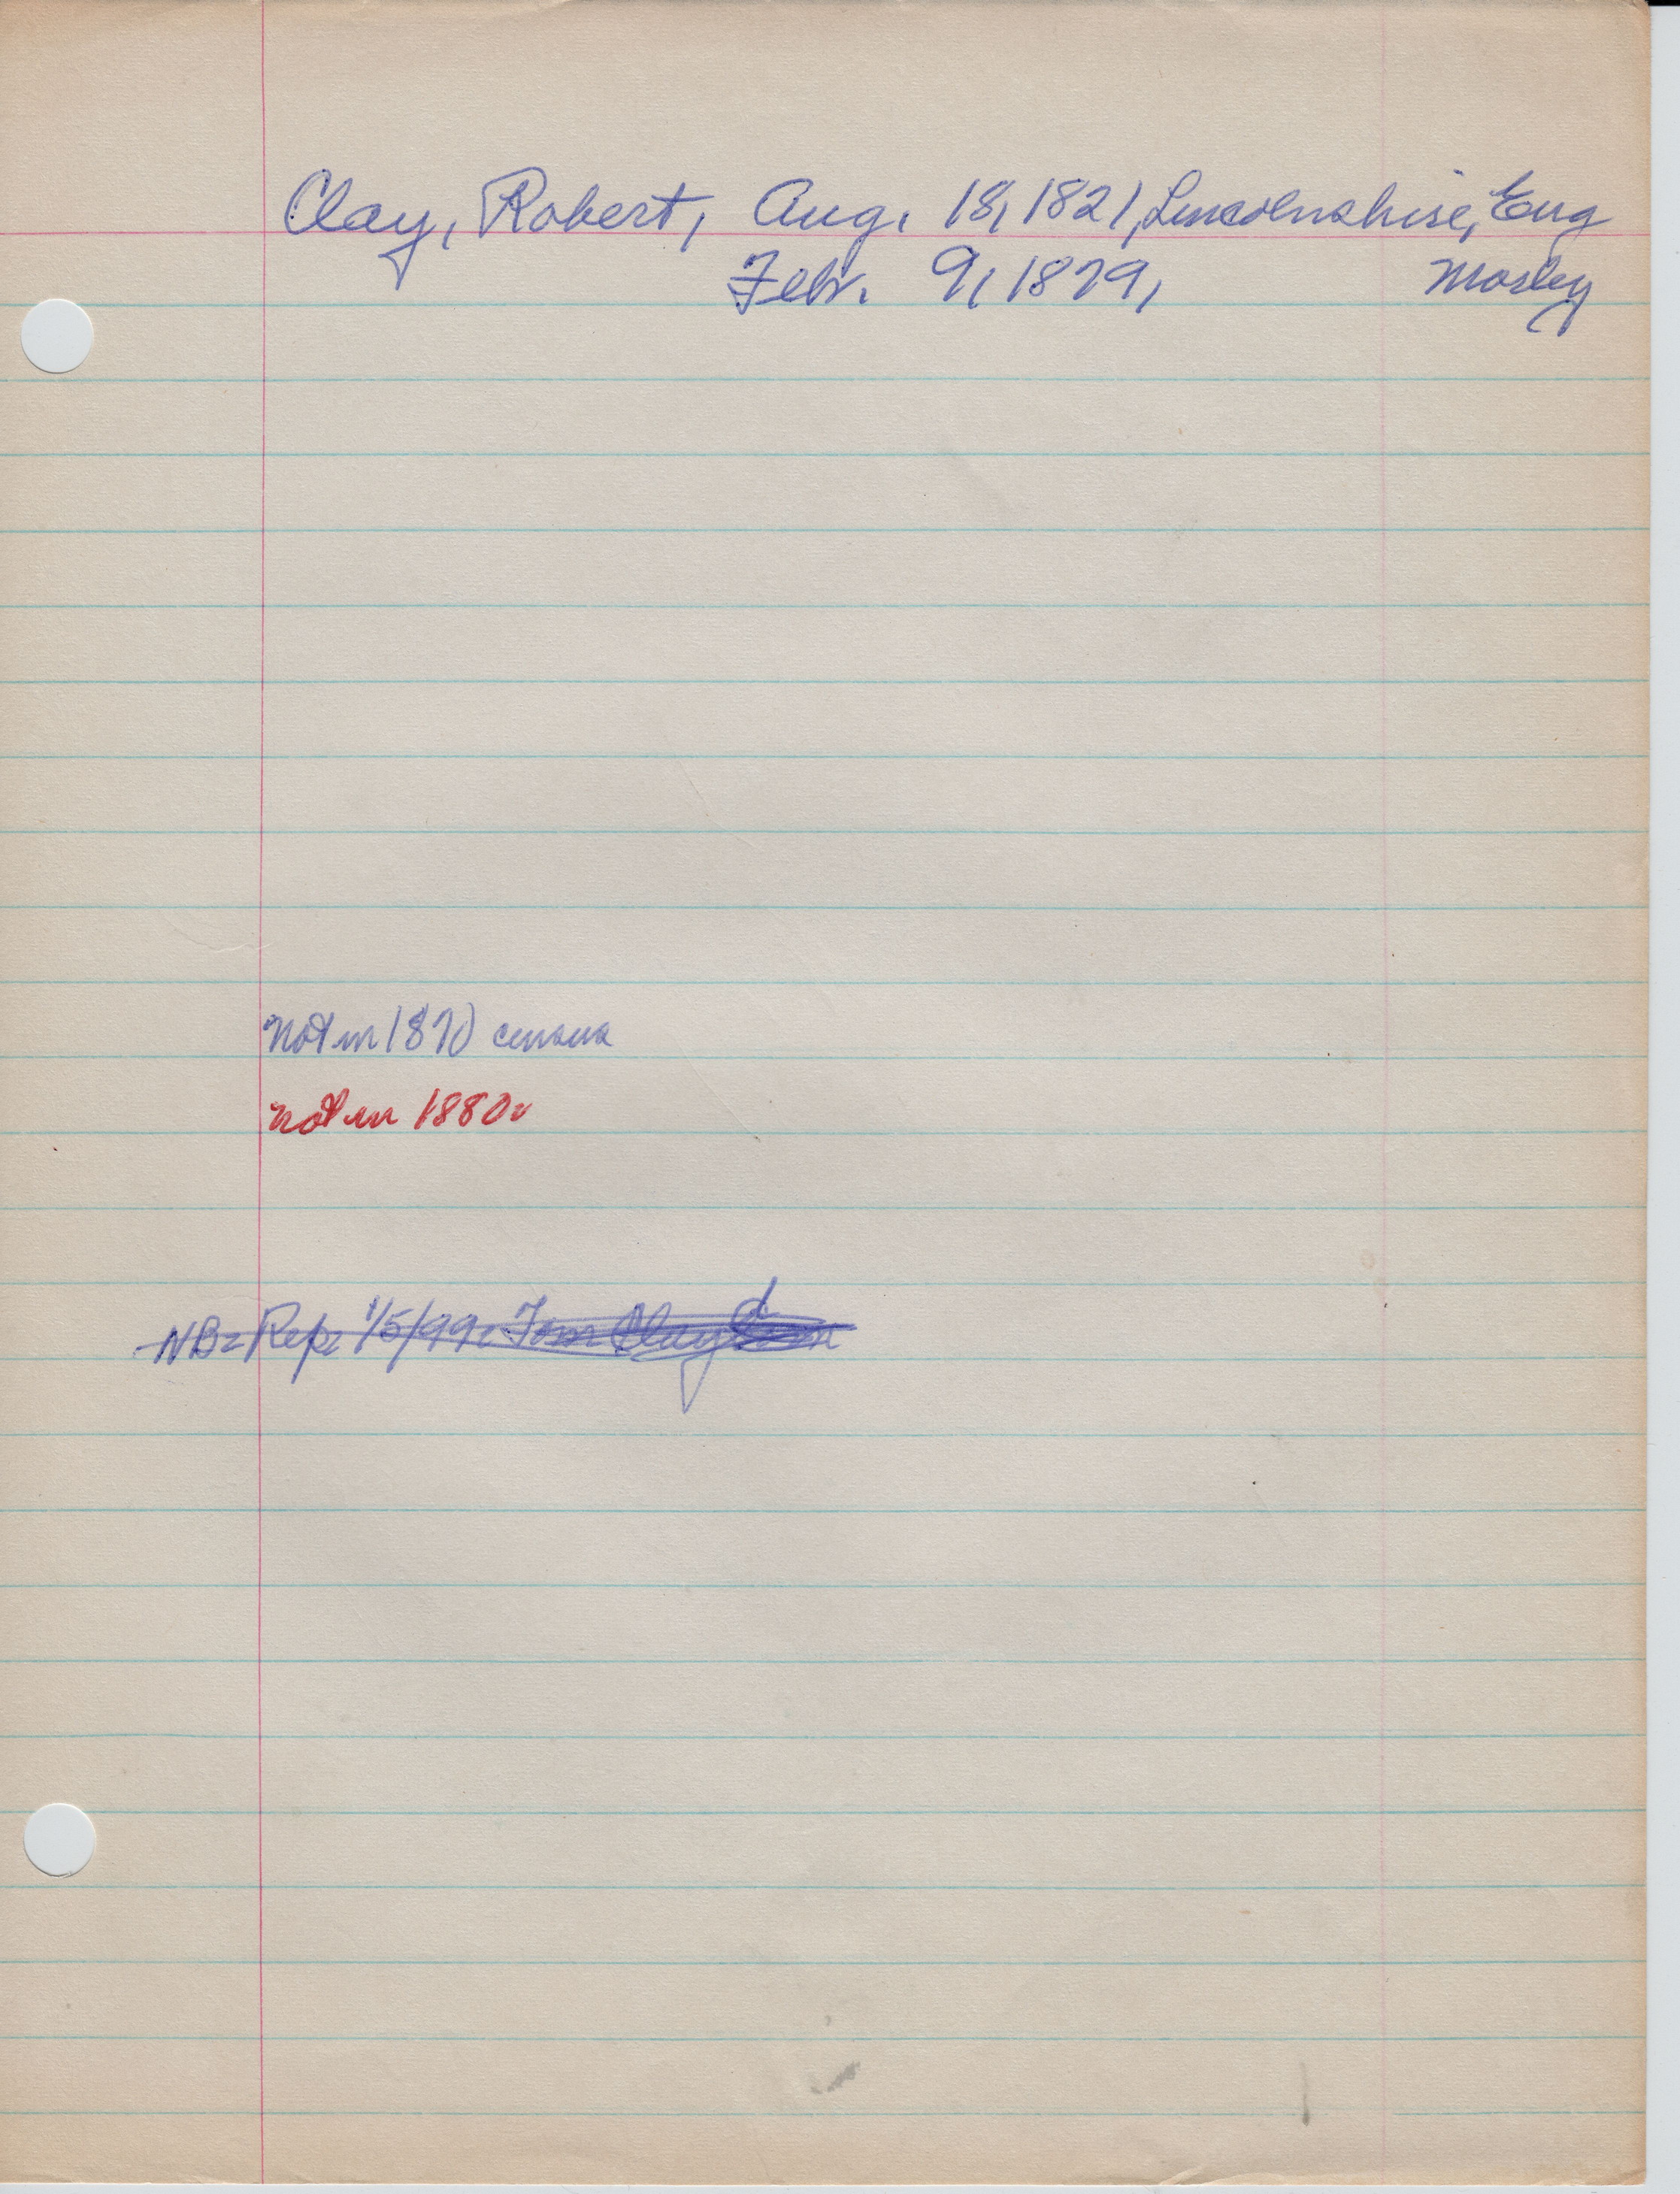 Clay, Robert, Aug. 18, 1821, Lincolnshire, Eng
Febr. 9, 1879, Mosley
not in 1870 census
not in 1880.
NB-Rep. 1/5/99. Tom Clay